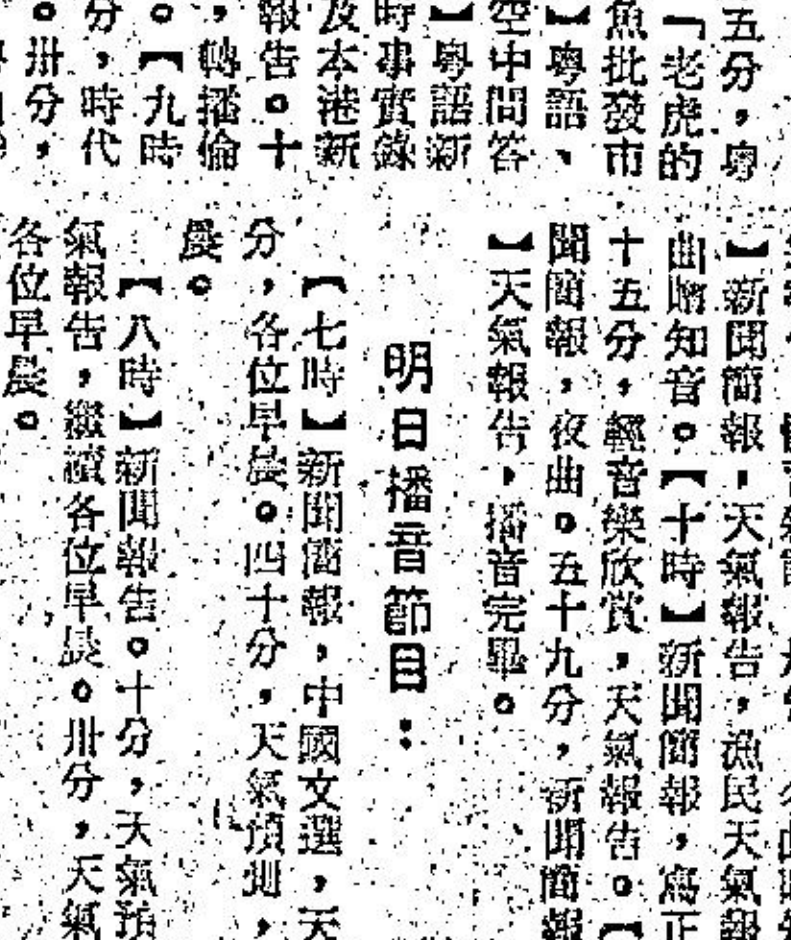 五分，粵
「老虎的
魚批發市
】粵語、
空中問答
】粵語新
時事實錄
及本港新
報告。十
，轉播倫
。【九時
分，時代
。卅分，
】新聞簡報，天氣報告，漁民天氣報
曲贈知音。【十時】新聞簡報，正
十五分，輕音樂欣賞，天氣報告。【
聞簡報，夜曲。五十九分，新聞簡報
】天氣報告，播音完畢。
明日播音節目：
【七時】新聞簡報，中國文選，天
分，各位早晨。四十分，天氣預測，
晨。
【八時】新聞報告。十分，天氣預
氣報告，繼續各位早晨。卅分，天氣
各位早晨。